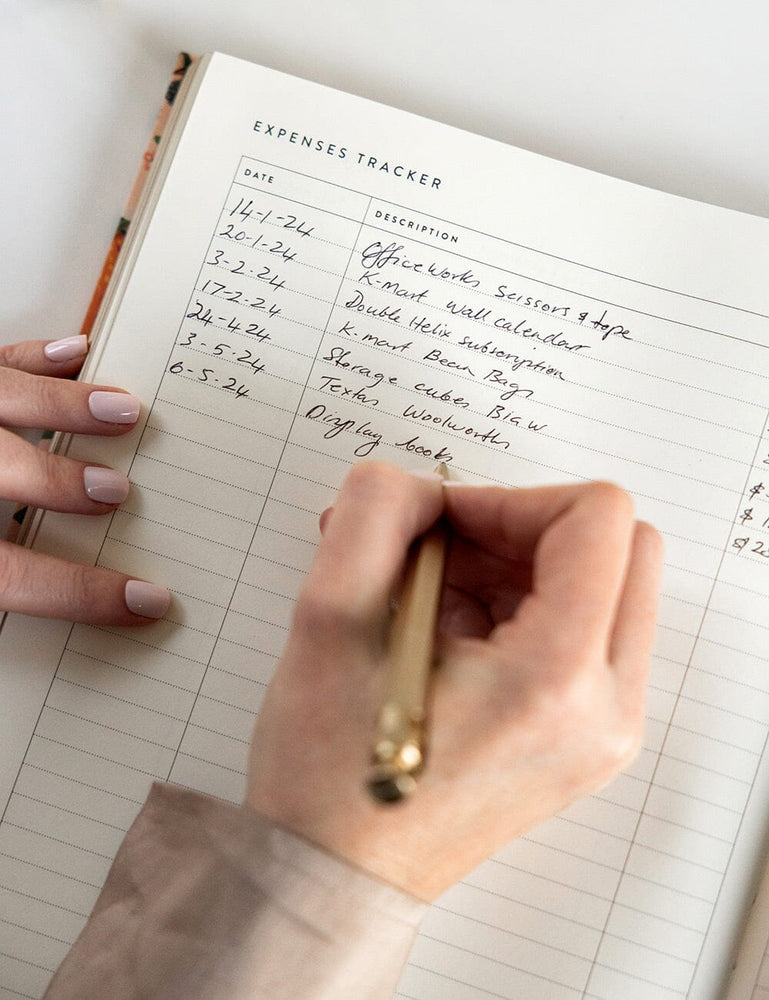 EXPENSES TRACKER
DATE DESCRIPTION
14-1-24 Officeworks Scissors & tape
20-1-24 K-Mart Wall calendar
3-2-24 Double Helix subscription
17-2-24 K-mart Bean Bags
24-4-24 Storage cubes Big W
3-5-24 Textas Woolworths
6-5-24 Display books
$
$ 1
$ 20